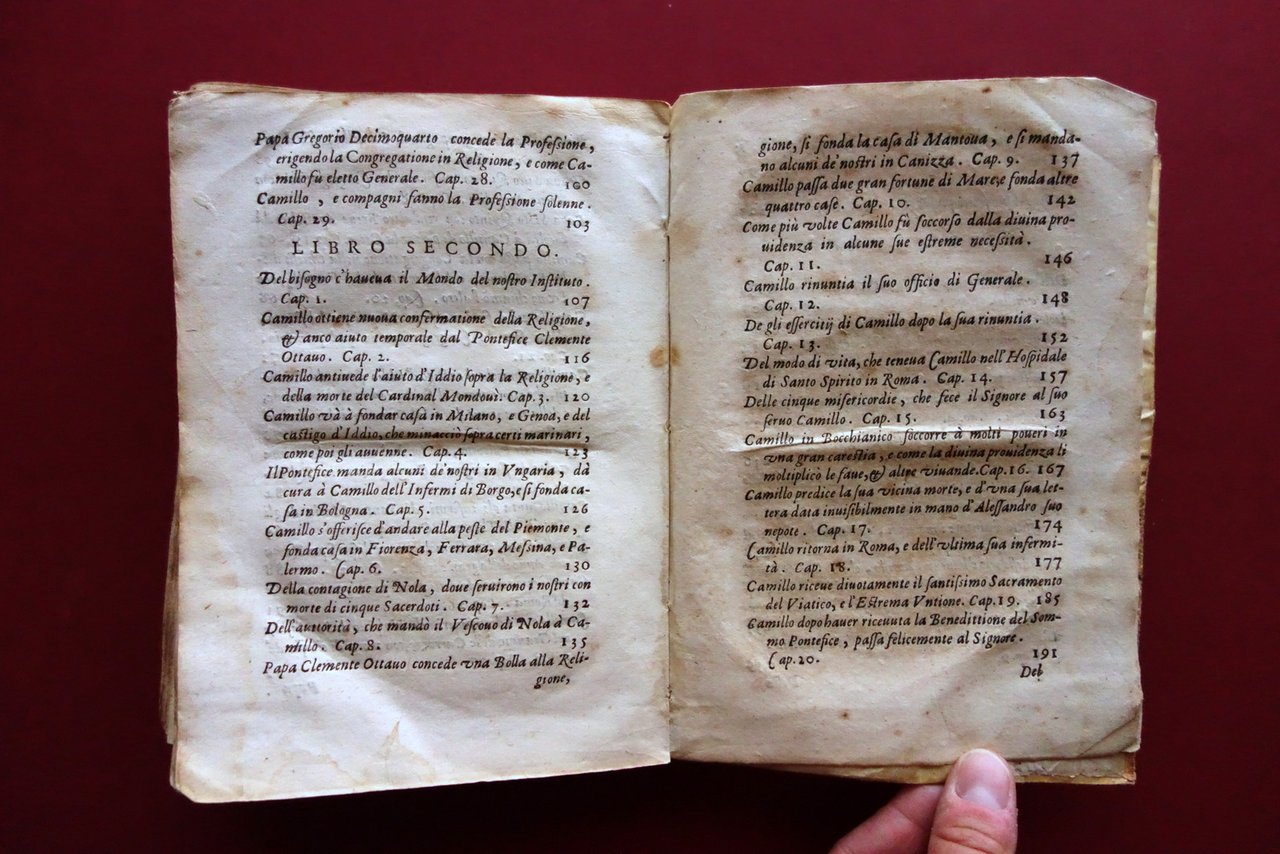 Papa Gregorio Decimoquarto concede la Profeſſione,
erigendo la Congregatione in Religione, e come Ca-
millo fù eletto Generale. Cap. 28. 100
Camillo, e compagni fanno la Profeſſione ſolenne.
Cap. 29. 103
LIBRO SECONDO.
Del biſogno c'haueua il Mondo del noſtro Inſtituto.
Cap. 1. 107
Camillo ottiene nuoua confermatione della Religione,
& anco aiuto temporale dal Pontefice Clemente
Ottauo. Cap. 2. 116
Camillo antiuede l'aiuto d'Iddio ſopra la Religione, e
della morte del Cardinal Mondouì. Cap. 3. 120
Camillo và à fondar caſa in Milano, e Genoa, e del
caſtigo d'Iddio, che minacciò ſopra certi marinari,
come poi gli auuenne. Cap. 4. 123
Il Pontefice manda alcuni de'noſtri in Vngaria, dà
cura à Camillo dell'Infermi di Borgo, e ſi fonda ca-
ſa in Bologna. Cap. 5. 126
Camillo s'offeriſce d'andare alla peſte del Piemonte, e
fonda caſa in Fiorenza, Ferrara, Meſſina, e Pa-
lermo. Cap. 6. 130
Della contagione di Nola, doue ſeruirono i noſtri con
morte di cinque Sacerdoti. Cap. 7. 132
Dell'auttorità, che mandò il Veſcouo di Nola à Ca-
millo. Cap. 8. 135
Papa Clemente Ottauo concede vna Bolla alla Reli-
gione,
gione, ſi fonda la caſa di Mantoua, e ſi manda-
no alcuni de'noſtri in Canizza. Cap. 9. 137
Camillo paſſa due gran fortune di Mare, e fonda altre
quattro caſe. Cap. 10. 142
Come più volte Camillo fù ſoccorſo dalla diuina pro-
uidenza in alcune ſue eſtreme neceſſità.
Cap. 11. 146
Camillo rinuntia il ſuo officio di Generale.
Cap. 12. 148
De gli eſſercitij di Camillo dopo la ſua rinuntia.
Cap. 13. 152
Del modo di vita, che teneua Camillo nell'Hoſpidale
di Santo Spirito in Roma. Cap. 14. 157
Delle cinque miſericordie, che fece il Signore al ſuo
ſeruo Camillo. Cap. 15. 163
Camillo in Bocchianico ſoccorre à molti poueri in
vna gran careſtia, e come la diuina prouidenza li
moltiplicò le faue, & altre viuande. Cap. 16. 167
Camillo predice la ſua vicina morte, e d'vna ſua let-
tera data inuiſibilmente in mano d'Aleſſandro ſuo
nepote. Cap. 17. 174
Camillo ritorna in Roma, e dell'vltima ſua infermi-
tà. Cap. 18. 177
Camillo riceue diuotamente il ſantiſſimo Sacramento
del Viatico, e l'Eſtrema Vntione. Cap. 19. 185
Camillo dopo hauer riceuuta la Benedittione del Som-
mo Pontefice, paſſa felicemente al Signore.
Cap. 20. 191
Del